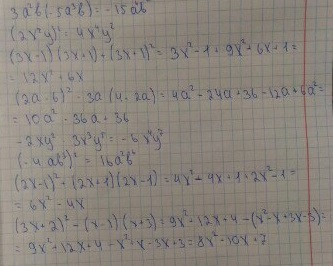 3a²b(-5a³b) = -15a⁵b²
(2x²y)² = 4x⁴y²
(3x-1)(3x+1)+(3x+1)² = 3x²-1+9x²+6x+1=
= 12x²+6x
(2a-6)² - 3a(4-2a) = 4a²-24a+36-12a+6a²=
= 10a²-36a+36
-2xy² 3x³y² = -6x⁴y²
(-4ab³)² = 16a²b⁶
(2x-1)²+(2x+1)(2x-1) = 4x²-4x+1+2x²-1=
= 6x²-4x
(3x+2)²-(x-1)(x+3) = 9x²+12x+4-(x²-x+3x-3)=
= 9x²+12x+4-x²+x-3x+3=8x²+10x+7